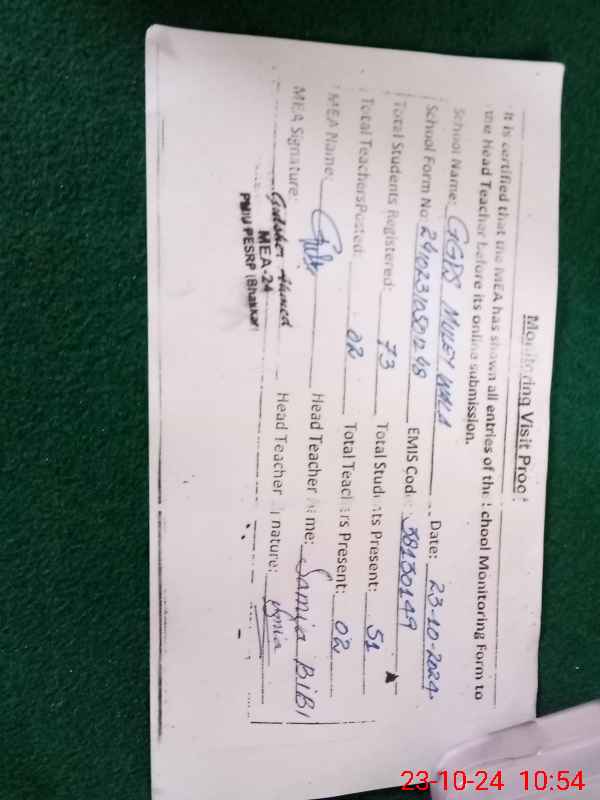 Monitoring Visit Proof
It is certified that the MEA has shown all entries of the School Monitoring Form to
the Head Teacher before its online submission.
School Name: GGPS MULEY WALA Date: 23-10-2024
School Form No: EMIS Code: 38130149
Total Students Registered: 73 Total Students Present: 51
Total Teachers Posted: 02 Total Teachers Present: 02
MEA Name: Head Teacher Name: Samia BiBi
MEA Signature: Head Teacher Signature: Samia
Gulsher Ahmed
MEA-24
PMIU PESRP (Bhakkar)
23-10-24 10:54